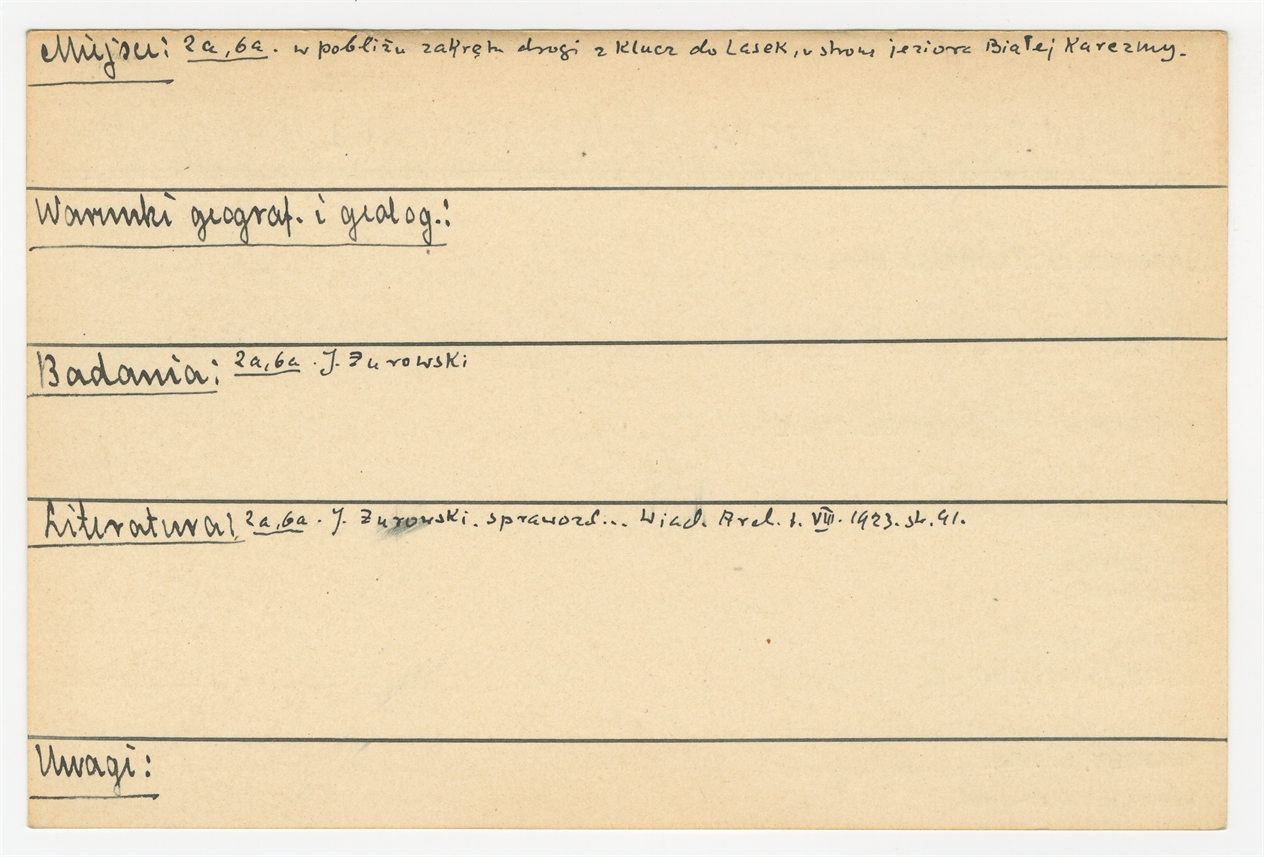 Miejsce: 2a, 6a. w pobliżu zakrętu drogi z Klucz do Lasek, w stronę jeziora Białej Karczmy.
Warunki geograf. i geolog.:
Badania: 2a, 6a. J. Żurowski
Literatura: 2a, 6a. J. Żurowski. sprawozd... Wiad. Arch. t. VIII. 1923. str. 91.
Uwagi: